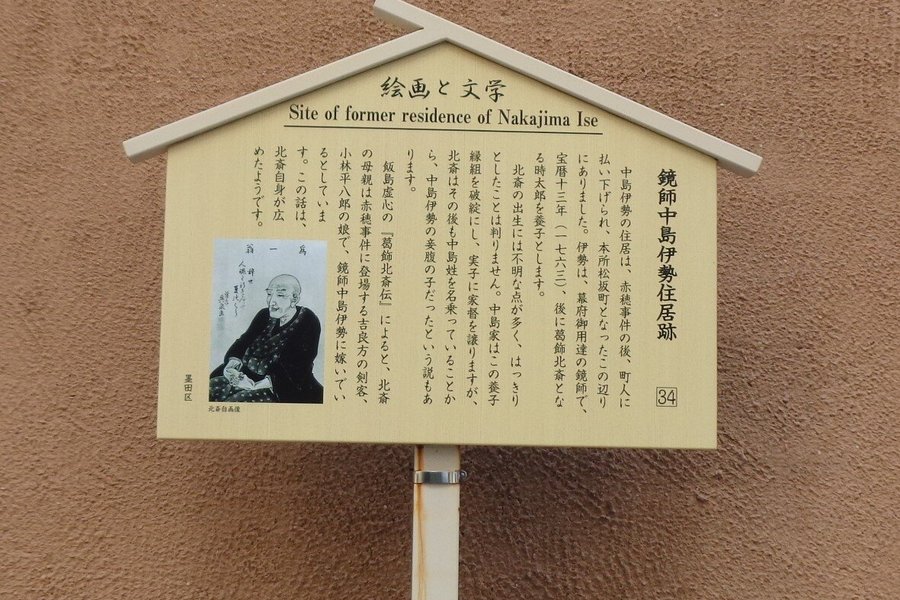 絵画と文学
Site of former residence of Nakajima Ise
鏡師中島伊勢住居跡
34
中島伊勢の住居は、赤穂事件の後、町人に
払い下げられ、本所松坂町となったこの辺り
にありました。伊勢は、幕府御用達の鏡師で、
宝暦十三年（一七六三）、後に葛飾北斎とな
る時太郎を養子とします。
北斎の出生には不明な点が多く、はっきり
としたことは判りません。中島家はこの養子
縁組を破綻にし、実子に家督を譲りますが、
北斎はその後も中島姓を名乗っていることか
ら、中島伊勢の妾腹の子だったという説もあ
ります。
飯島虚心の『葛飾北斎伝』によると、北斎
の母親は赤穂事件に登場する吉良方の剣客、
小林平八郎の娘で、鏡師中島伊勢に嫁いでい
るとしていま
す。この話は、
北斎自身が広
めたようです。
北斎自画像
墨田区